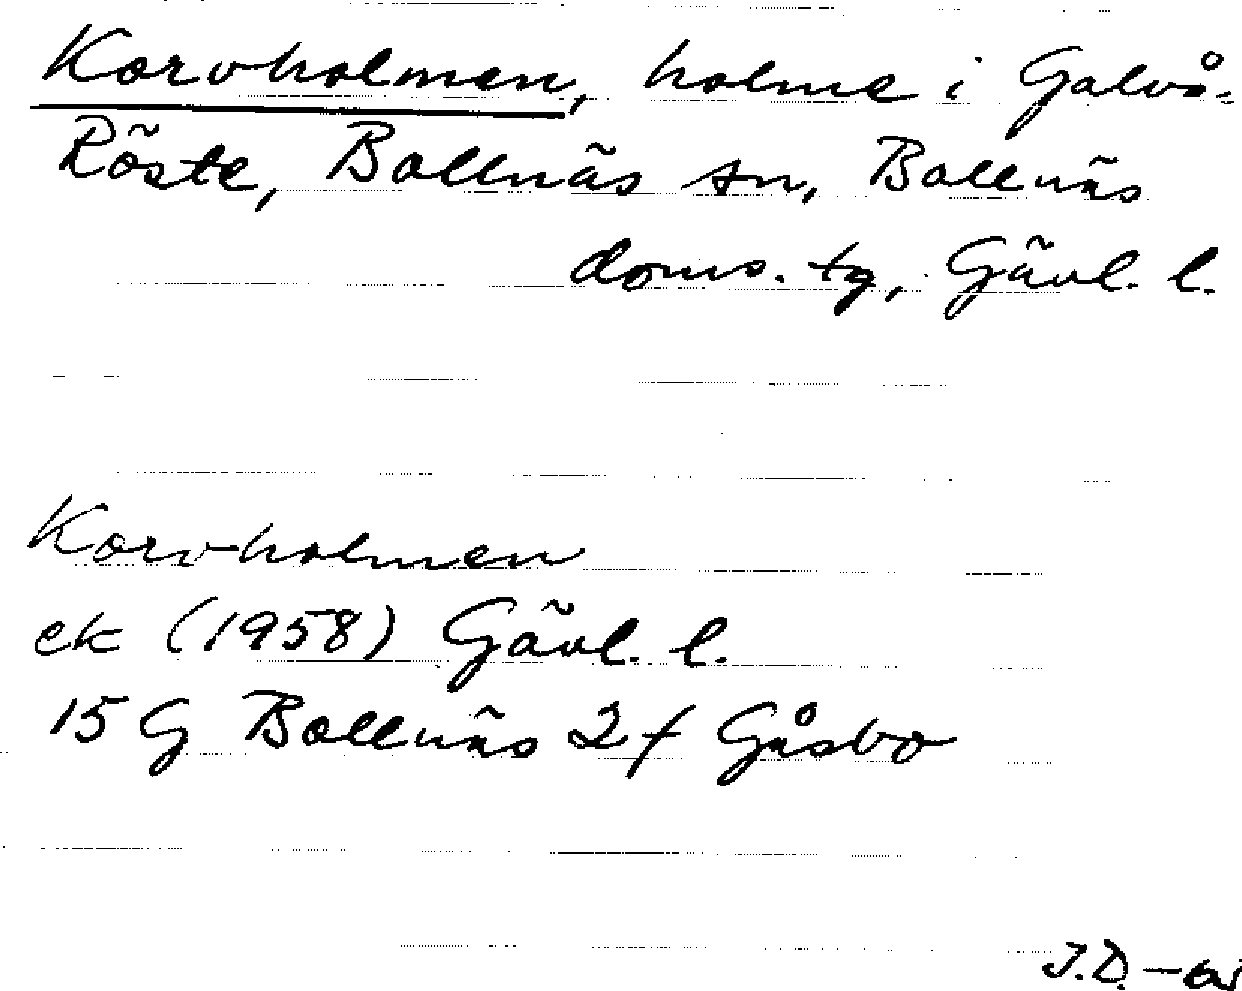 Korvholmen, holme i Galvå-
Röste, Bollnäs sn, Bollnäs
doms. tg, Gävl. l.
Korvholmen
ek (1958) Gävl. l.
15 G Bollnäs 2 f Gåsbo
J.D.